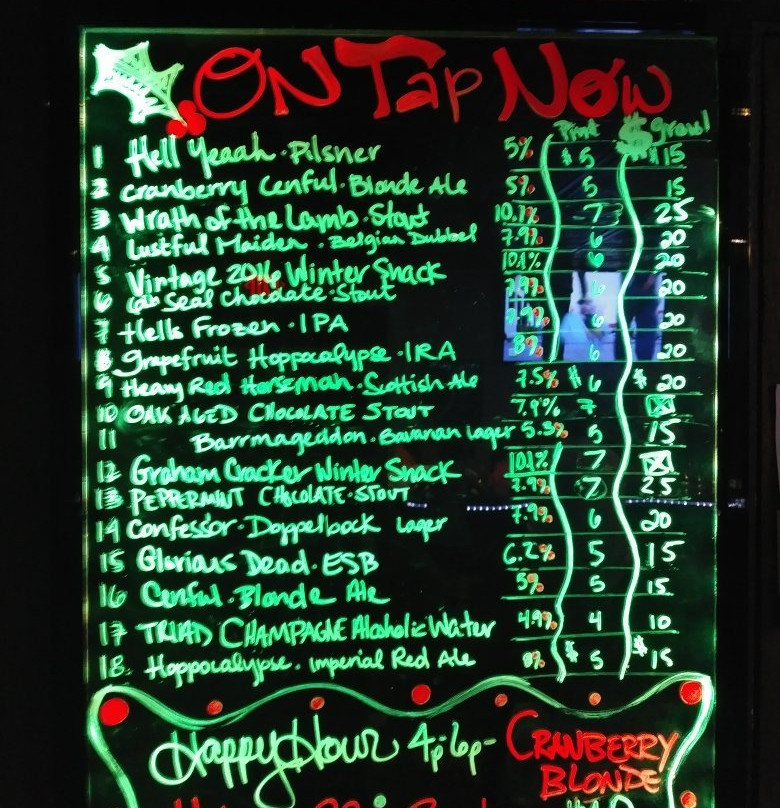 ON Tap Now
Pint $ growl
1 Hell Yeaah · Pilsner 5% $5 $15
2 Cranberry Cenful · Blonde Ale 5% 5 15
3 Wrath of the Lamb · Stout 10.1% 7 25
4 Lustful Maiden · Belgian Dubbel 7.9% 6 20
5 Vintage 2016 Winter Snack 10.1% 6 20
6 Seal Chocolate · Stout 7.9% 6 20
7 Hells Frozen · IPA 7.9% 6 20
8 grapefruit Hoppocalypse · IRA 8% 6 20
9 Heavy Red Horseman · Scottish Ale 7.5% $6 $20
10 OAK AGED CHOCOLATE STOUT 7.9% 7
11 Barrmageddon · Bavarian lager 5.3% 5 15
12 Graham Cracker Winter Snack 10.1% 7
13 PEPPERMINT CHOCOLATE · STOUT 7.9% 7 25
14 Confessor · Doppelbock lager 7.9% 6 20
15 Glorious Dead · ESB 6.2% 5 15
16 Cenful · Blonde Ale 5% 5 15
17 TRIAD CHAMPAGNE Alcoholic Water 4.9% 4 10
18 Hoppocalypse · imperial Red Ale 8% $5 $15
Happy Hour 4p-6p- CRANBERRY
BLONDE